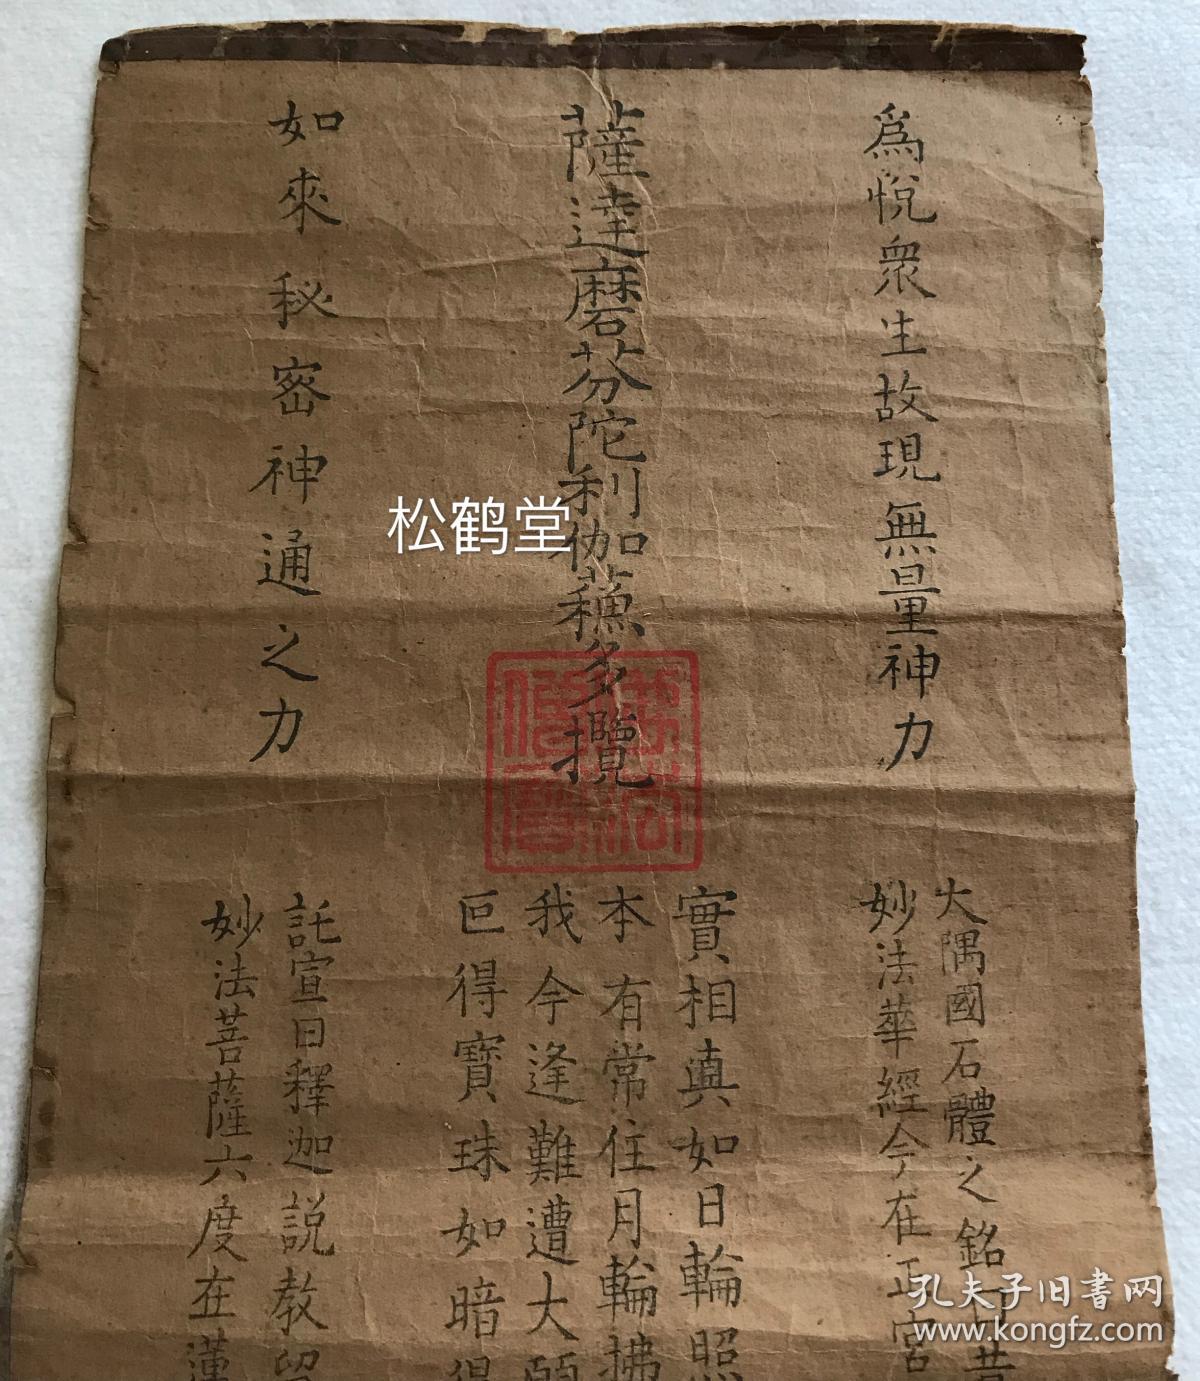 爲悅衆生故現無量神力
薩達磨芬陀利伽蘓多攬
如來秘密神通之力
大隅國石體之銘曰昔
妙法華經今在正宮
實相眞如日輪照
本有常住月輪拂
我今逢難遭大願
叵得寶珠如暗得
託宣曰釋迦説教留
妙法菩薩六度在蓮
松鹤堂
孔夫子旧书网
www.kongfz.com